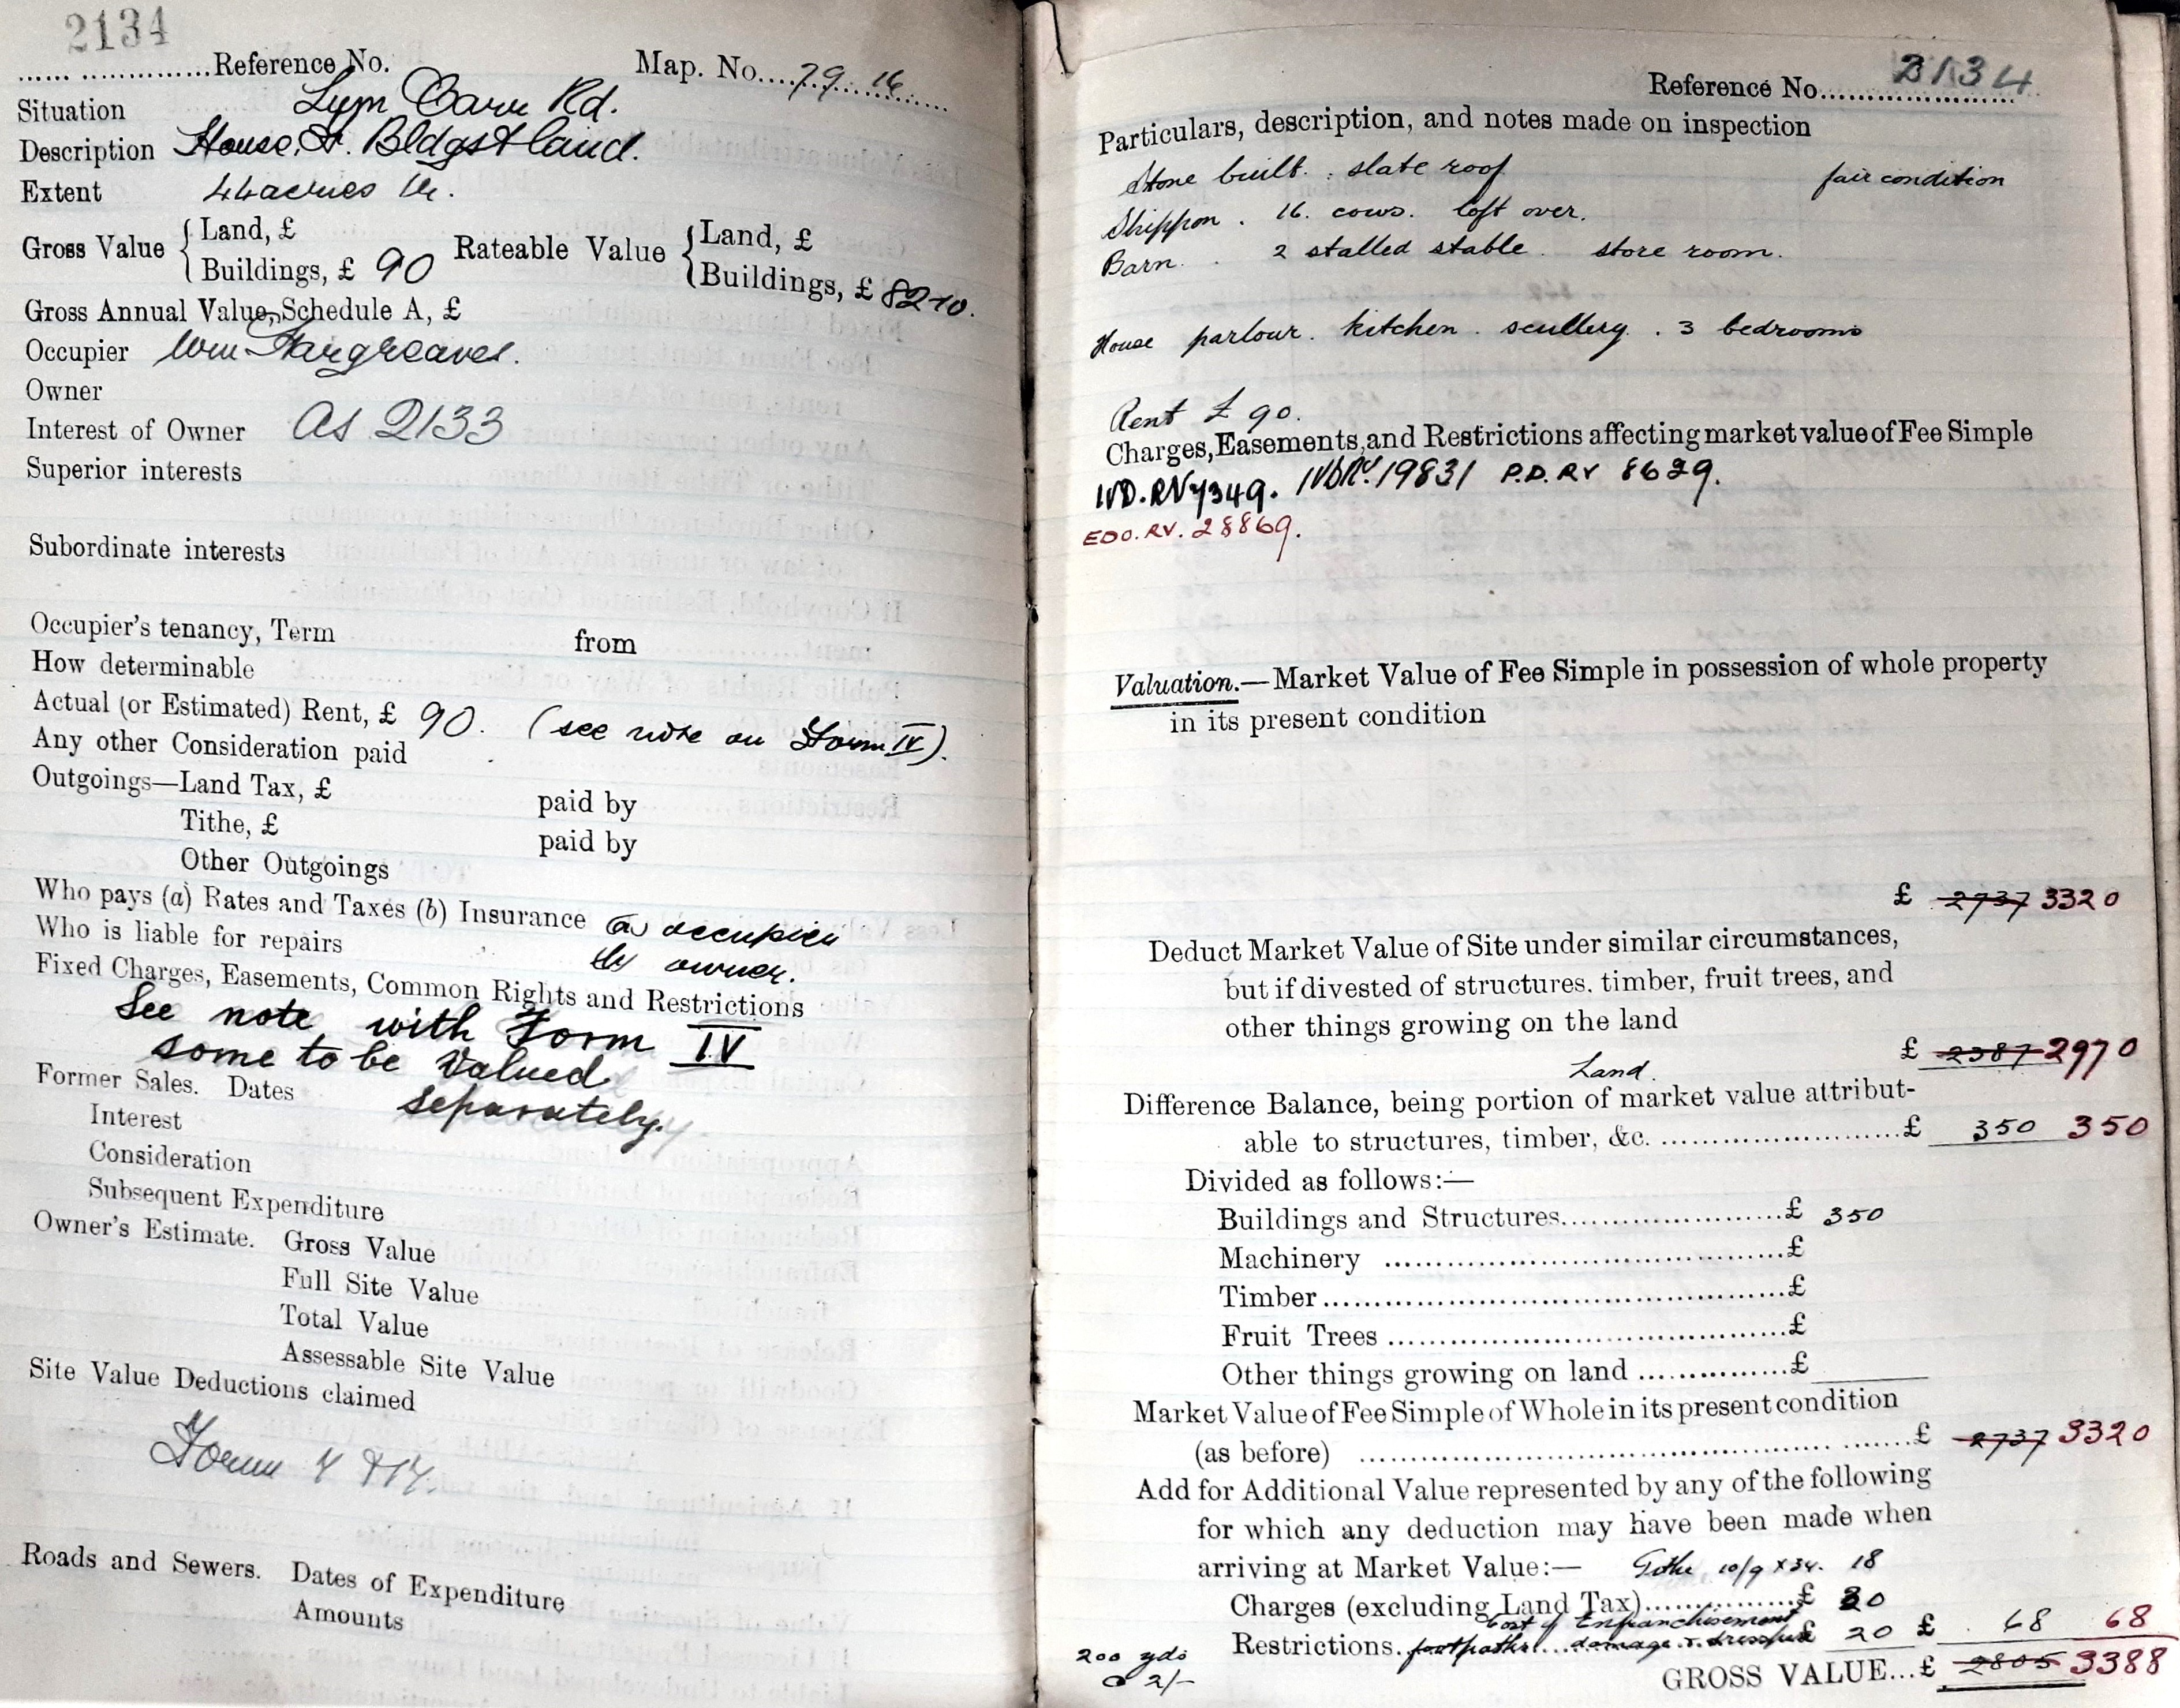 2134
.................Reference No. Map. No....79.16......
Situation Lum Carr Rd.
Description House, F. Bldgs & land.
Extent 44 acres
Gross Value { Land, £ Rateable Value { Land, £
Buildings, £ 90 Buildings, £ 82-10.
Gross Annual Value, Schedule A, £
Occupier Wm Hargreaves.
Owner
Interest of Owner As 2133
Superior interests
Subordinate interests
Occupier's tenancy, Term from
How determinable
Actual (or Estimated) Rent, £ 90. (see note on Form IV).
Any other Consideration paid
Outgoings—Land Tax, £ paid by
Tithe, £ paid by
Other Outgoings
Who pays (a) Rates and Taxes (b) Insurance (a) occupier
Who is liable for repairs (b) owner.
Fixed Charges, Easements, Common Rights and Restrictions
See note with Form IV
some to be Valued
Former Sales. Dates separately.
Interest
Consideration
Subsequent Expenditure
Owner's Estimate. Gross Value
Full Site Value
Total Value
Assessable Site Value
Site Value Deductions claimed
Form 4
Roads and Sewers. Dates of Expenditure
Amounts
Reference No. 2134
Particulars, description, and notes made on inspection
Stone built. slate roof fair condition
Shippon. 16. cows. loft over.
Barn. 2 stalled stable. store room.
House parlour. kitchen. scullery. 3 bedrooms
Rent £ 90.
Charges, Easements, and Restrictions affecting market value of Fee Simple
IVD.RV 7349. IVD.RV.19831 P.D. RV 8629.
EDO. RV. 28869.
Valuation.—Market Value of Fee Simple in possession of whole property
in its present condition
£ 2737 3320
Deduct Market Value of Site under similar circumstances,
but if divested of structures, timber, fruit trees, and
other things growing on the land
Land. £ 2387 2970
Difference Balance, being portion of market value attribut-
able to structures, timber, &c. ........................£ 350 350
Divided as follows:—
Buildings and Structures......................£ 350
Machinery ......................................£
Timber............................................£
Fruit Trees ......................................£
Other things growing on land ...............£
Market Value of Fee Simple of Whole in its present condition
(as before) ............................................£ 2737 3320
Add for Additional Value represented by any of the following
for which any deduction may have been made when
arriving at Market Value:— Tithe 10/9 x 34. 18
Charges (excluding Land Tax)...............£ 30
Cost of Enfranchisement
Restrictions. footpaths damage 20 £ 68 68
200 yds
@ 2/- GROSS VALUE...£ 2805 3388